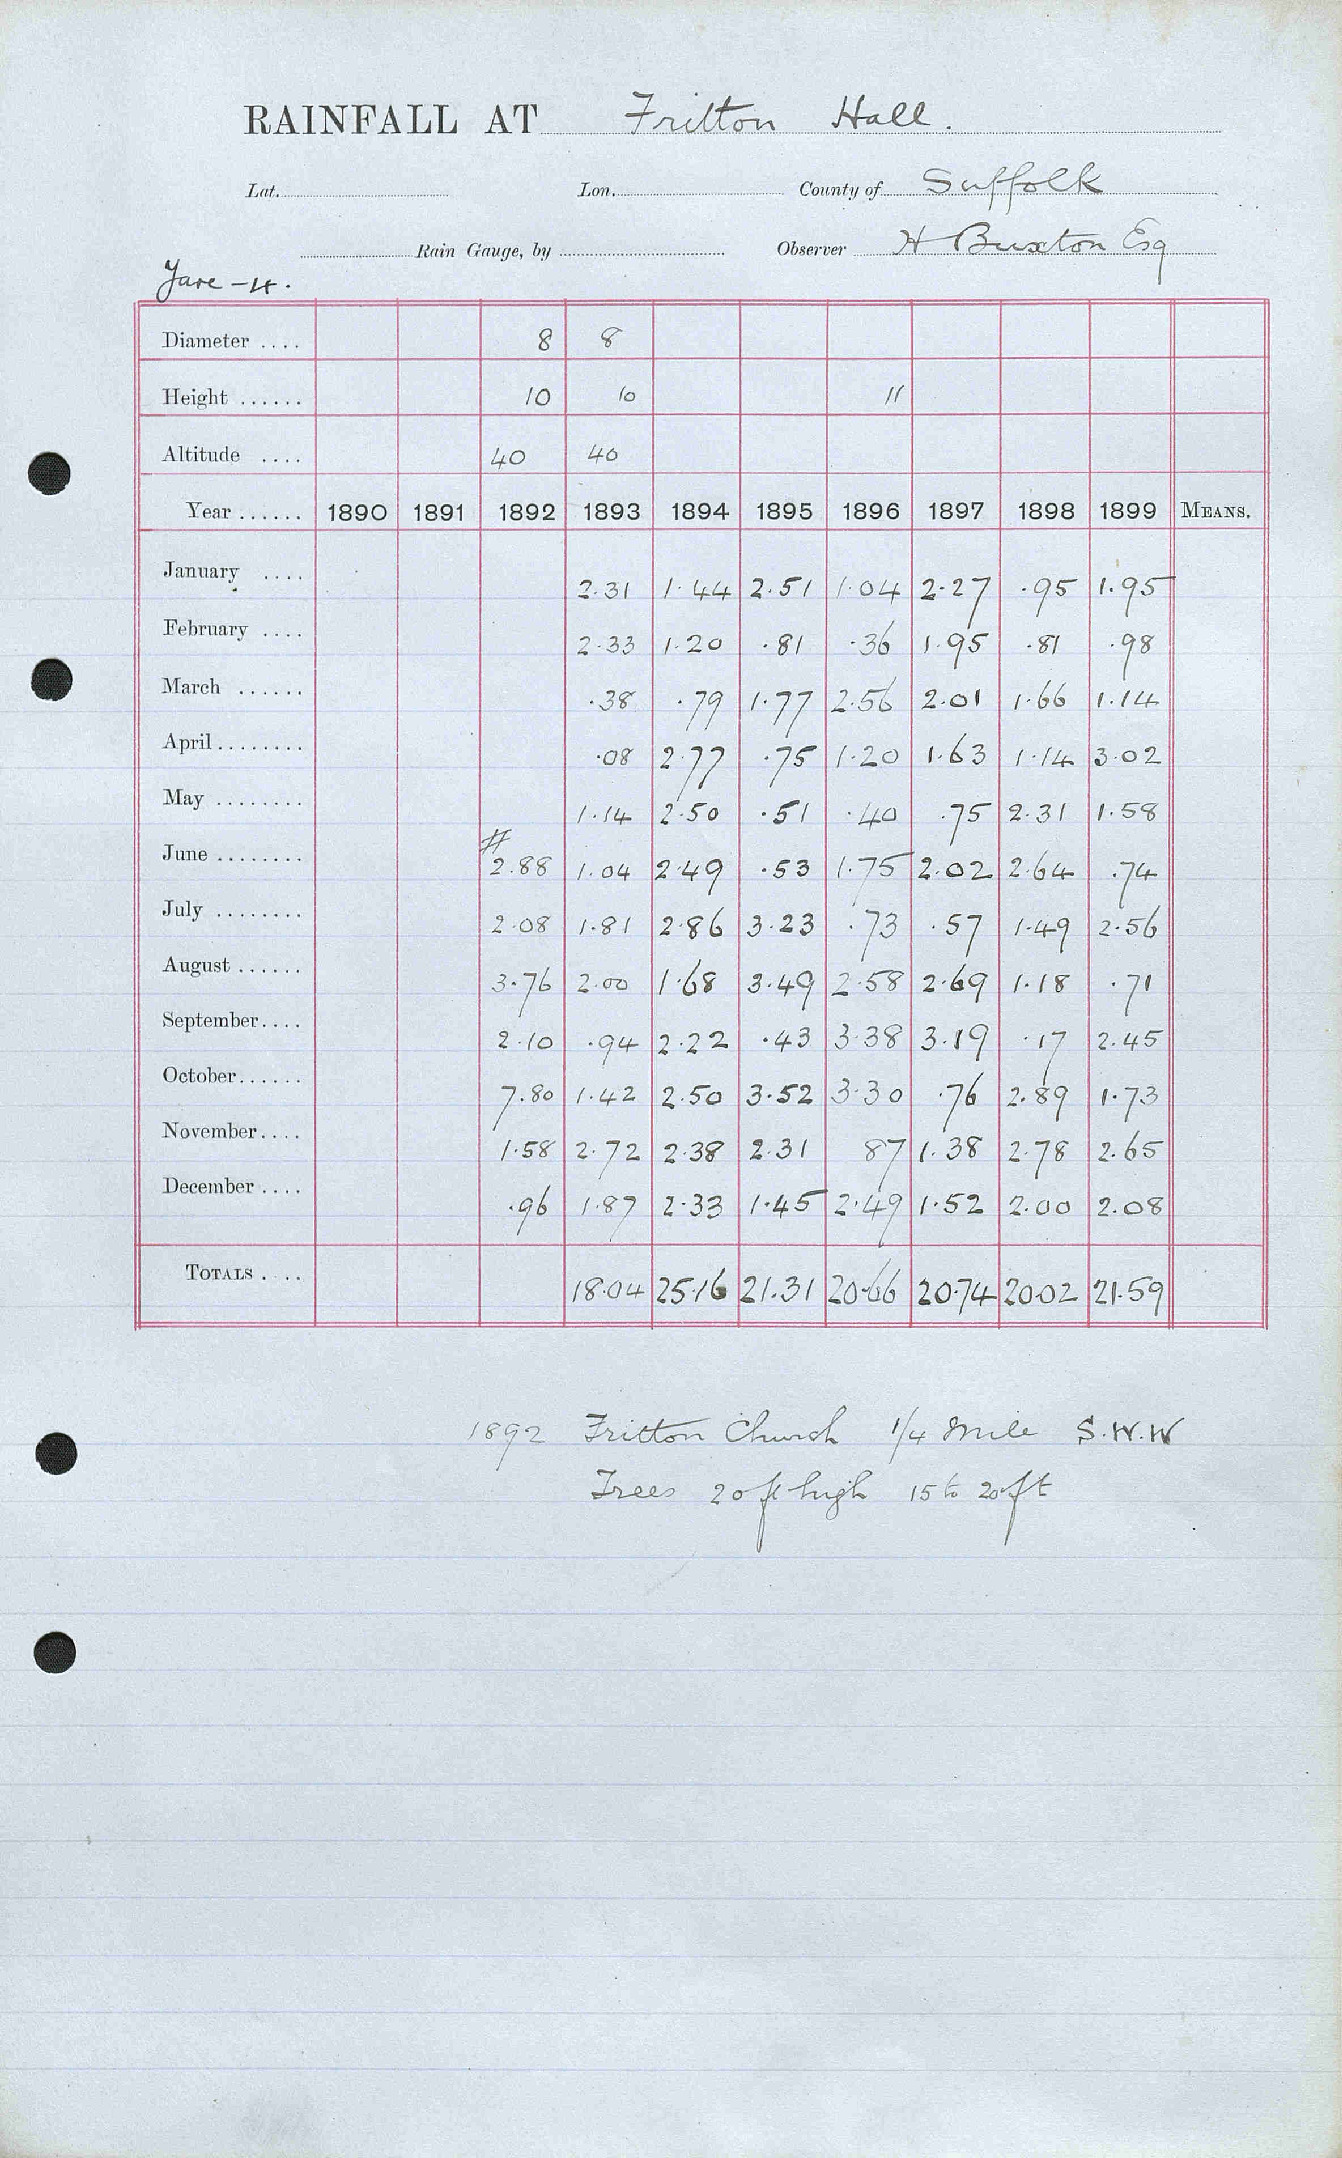 RAINFALL AT Fritton Hall.
Lat. Lon. County of Suffolk
Rain Gauge, by Observer H Buxton Esq
Yare - 4.
Diameter .... 8 8
Height ...... 10 10 11
Altitude .... 40 40
Year ...... 1890 1891 1892 1893 1894 1895 1896 1897 1898 1899 MEANS.
January .... 2.31 1.44 2.51 1.04 2.27 .95 1.95
February .... 2.33 1.20 .81 .36 1.95 .81 .98
March ...... .38 .79 1.77 2.56 2.01 1.66 1.14
April ........ .08 2.77 .75 1.20 1.63 1.14 3.02
May ........ 1.14 2.50 .51 .40 .75 2.31 1.58
June ........ # 2.88 1.04 2.49 .53 1.75 2.02 2.64 .74
July ........ 2.08 1.81 2.86 3.23 .73 .57 1.49 2.56
August ...... 3.76 2.00 1.68 3.49 2.58 2.69 1.18 .71
September .... 2.10 .94 2.22 .43 3.38 3.19 .17 2.45
October ...... 7.80 1.42 2.50 3.52 3.30 .76 2.89 1.73
November .... 1.58 2.72 2.38 2.31 87 1.38 2.78 2.65
December .... .96 1.87 2.33 1.45 2.49 1.52 2.00 2.08
TOTALS .... 18.04 25.16 21.31 20.66 20.74 20.02 21.59
1892 Fritton Church 1/4 Mile S.W.W
Trees 20 ft high 15 to 20 ft